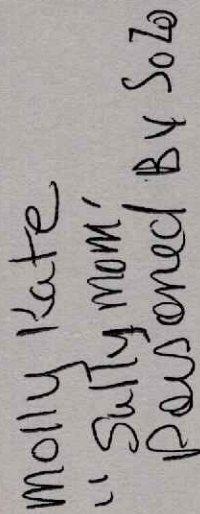 Molly Kate
"Sully mom'
Pawsoned By Solo